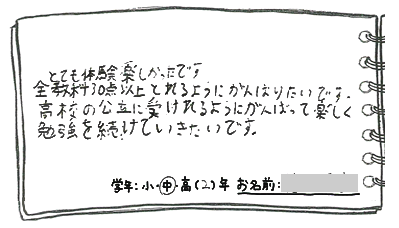 とても体験楽しかったです
全教科30点以上とれるようにがんばりたいです.
高校の公立に受けれるようにがんばって楽しく
勉強を続けていきたいです。
学年:小・中・高(2)年 お名前: